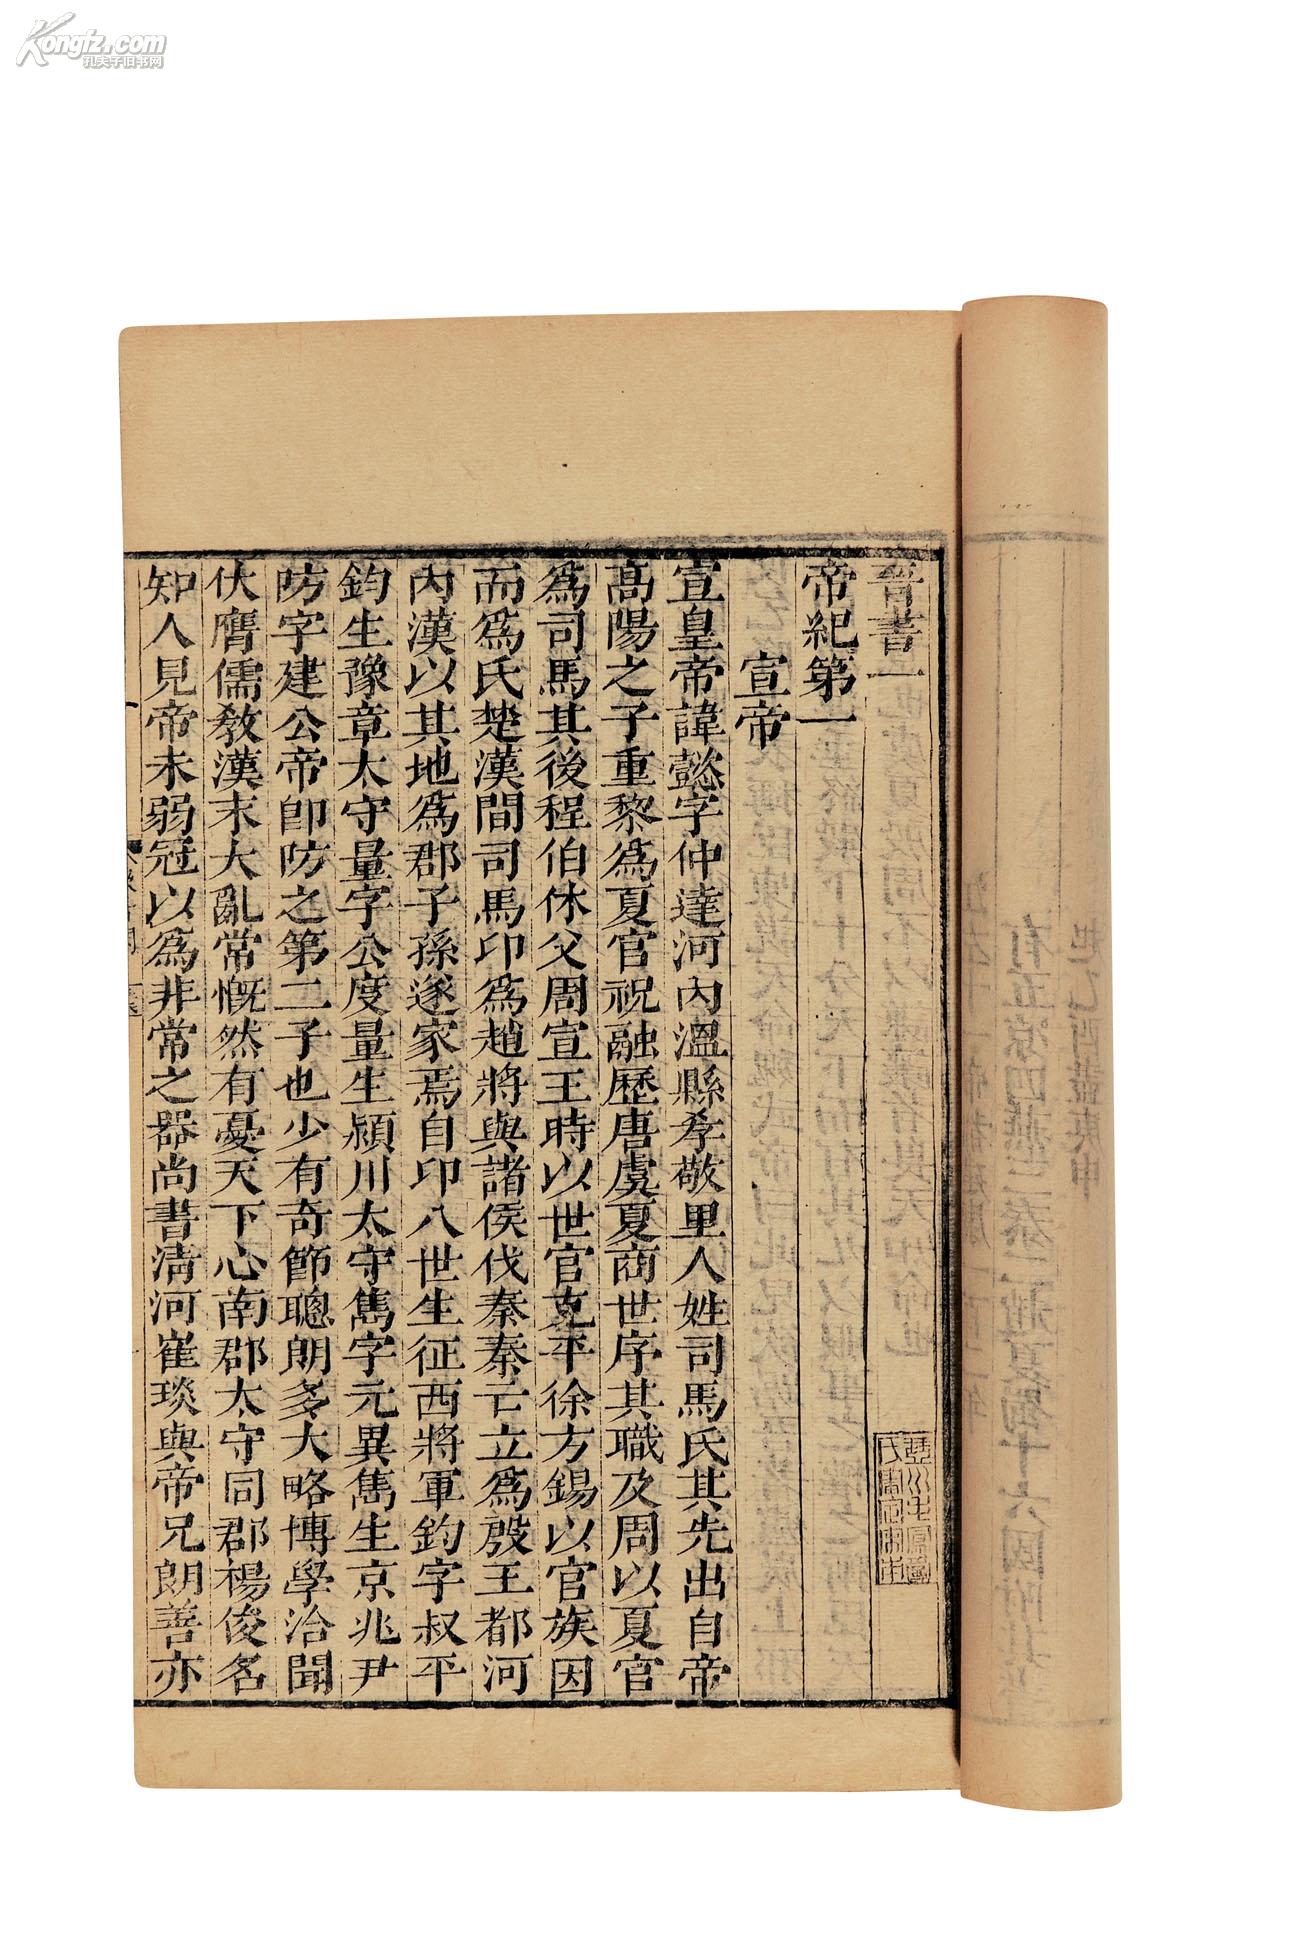 Kongfz.com
孔夫子旧书网
晉書一
帝紀第一
宣帝
宣皇帝諱懿字仲達河內溫縣孝敬里人姓司馬氏其先出自帝
高陽之子重黎為夏官祝融歷唐虞夏商世序其職及周以夏官
為司馬其後程伯休父周宣王時以世官克平徐方錫以官族因
而為氏楚漢間司馬卬為趙將與諸侯伐秦秦亡立為殷王都河
內漢以其地為郡子孫遂家焉自卬八世生征西將軍鈞字叔平
鈞生豫章太守量字公度量生潁川太守雋字元異雋生京兆尹
防字建公帝即防之第二子也少有奇節聰朗多大略博學洽聞
伏膺儒敎漢末大亂常慨然有憂天下心南郡太守同郡楊俊名
知人見帝未弱冠以為非常之器尚書淸河崔琰與帝兄朗善亦